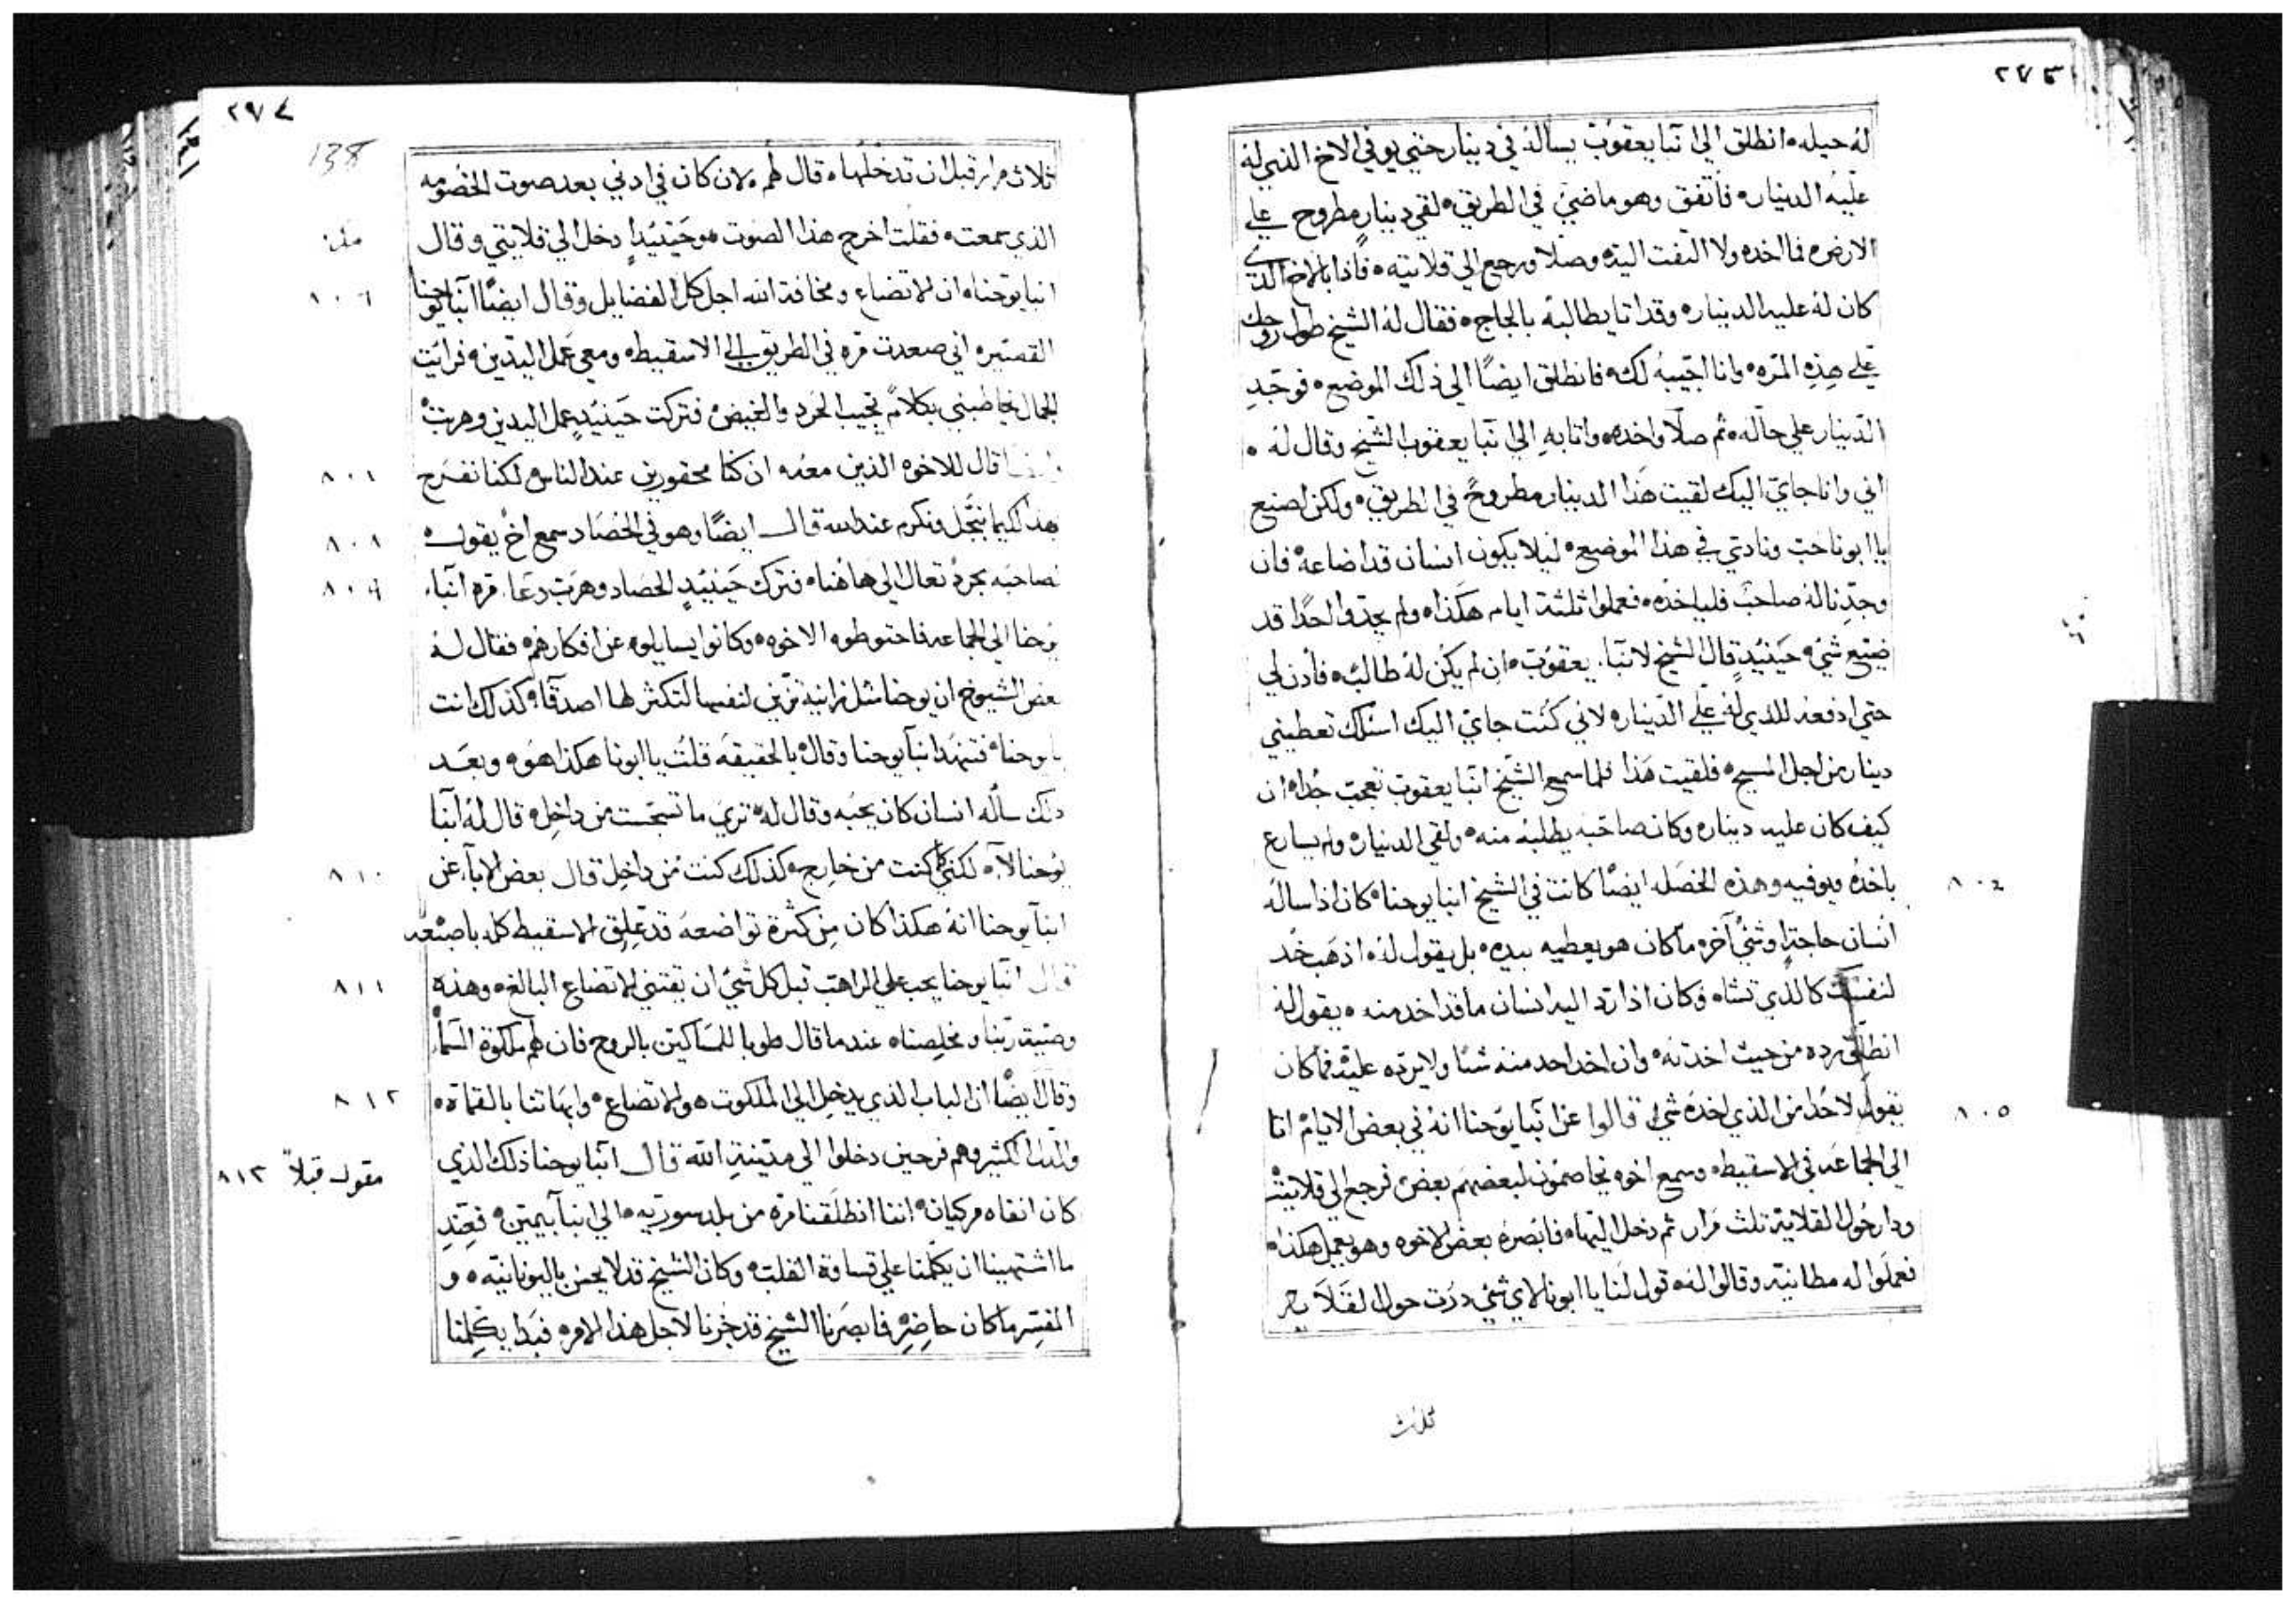 ٢٧٣
له حيله ٥ انطلق الي انبا يعقوب يساله في دينار حتي يوفي الاخ الذي له
عليه الدينار ٥ فاتفق وهو ماضي في الطريق ٥ لقي دينار مطروح علي
الارض ٥ فما اخده ولا التفت اليه ٥ وصلا ورجع الي قلايته ٥ فاذا بالاخ الذي
كان له عليه الدينار ٥ وقد اتا يطالبه بالجاج ٥ فقال له الشيخ طول روحك
علي هذه المره ٥ وانا اجيبه لك ٥ فانطلق ايضًا الي ذلك الموضع ٥ فوجد
الدينار علي حاله ٥ ثم صلا واخده ٥ واتا به الي انبا يعقوب الشيخ وقال له ٥
اني وانا جاي اليك لقيت هذا الدينار مطروح في الطريق ٥ ولكن اصنع
يا ابونا حب ونادي في هذا الموضع ٥ ليلا يكون انسان قد اضاعه ٥ فان
وجدنا له صاحب فلياخده ٥ فعملوا ثلثة ايام هكذا ٥ ولم يجدوا احدًا قد
ضيع شي ٥ حينيدٍ قال الشيخ لانبا يعقوب ٥ ان لم يكن له طالب ٥ فأدن لي
حتي ادفعه للذي له علي الدينار ٥ لاني كنت جاي اليك اسلك تعطيني
دينار من اجل المسيح ٥ فلقيت هذا فلما سمع الشيخ انبا يعقوب تعجب جدا ٥ ان
كيف كان عليه دينار ٥ وكان صاحبه يطلبه منه ٥ ولقي الدينار ٥ ولم يسارع
ياخده ويوفيه وهذه الخصله ايضًا كانت في الشيخ انبا يوحنا ٥ كان اذا ساله
٨٠٤
انسان حاجةٍ او شي آخر ٥ ما كان هو يعطيه بيده ٥ بل يقول له ٥ اذهب خد
لنفسك كالذي تشاه وكان اذا رد اليه انسان ما قد اخد منه ٥ يقول له
انطلق رده من حيث اخدته ٥ وان اخد احد منه شيًا ولا يرده عليه فما كان
يقول لاحد من الذي اخده شي ٥ قالوا عن انبا يوحنا انه في بعض الايام اتا
٨٠٥
الي الجماعه في الاسقيط ٥ وسمع اخوه يخاصمون لبعضهم بعض ٥ فرجع الي قلايته
ودار حول القلاية ثلث مرار ثم دخل اليها ٥ فابصره بعض الاخوه وهو يعمل هكذا ٥
فعملوا له مطانية وقالوا له ٥ قول لنا يا ابونا لاي شي درت حول القلايه
ثلاث
٢٧٤
138
ثلاث مرار قبل ان تدخلها ٥ قال لهم ٥ لان كان في ادني بعد صوت الخصومه
الذي سمعت ٥ فقلت اخرج هذا الصوت ٥ وحينيدٍ ادخل الي قلايتي وقال
انبا يوحنا ٥ ان الاتضاع ومخافة الله اجل كل الفضايل وقال ايضًا انبا يوحنا
٨٠٦
القصير ٥ اني صعدت مره في الطريق الي الاسقيط ٥ ومعي عمل اليدين ٥ فرايت
الجمال يخاطبني بكلام يجيب الحرد والغيض ٥ فتركت حينيدٍ عمل اليدين وهربت
قال للاخوه الذين معه ٥ ان كنا محقورين عند الناس لكنا نفرح
بهذا لكيما نتبجل ونكرم عند الله قال ايضًا وهو في الحصاد سمع اخ يقول ٥
٨٠٨
لصاحبه بحرد تعال الي هاهنا ٥ فترك حينيدٍ الحصاد وهرب دعا مره انبا
٨٠٩
يوحنا الي الجماعه فاحتوطوه الاخوه ٥ وكانوا يسايلوه عن افكارهم ٥ فقال له
بعض الشيوخ ان يوحنا مثل زانية تزين لنفسها لتكثر لها اصدقا ٥ كذلك انت
يا يوحنا ٥ فتنهد انبا يوحنا وقال ٥ بالحقيقه قلت يا ابونا هكذا هو ٥ وبعد
ذلك ساله انسان كان يحبه وقال له ٥ تري ما تسجست من داخل ٥ قال له انبا
يوحنا لا ٥ لكني كما كنت من خارج ٥ كذلك كنت من داخل قال بعض الابآ عن
٨١٠
انبا يوحنا انه هكذا كان من كثرة تواضعه قد علق الاسقيط كله باصبعه
قال انبا يوحنا يجب علي الراهب قبل كل شي ان يقتني الاتضاع البالغ ٥ وهذه
٨١١
وصية ربنا ومخلصنا ٥ عندما قال طوبا للمساكين بالروح فان لهم ملكوة السما
وقال ايضًا ان الباب الذي يدخل الي الملكوت ٥ هو الاتضاع ٥ وابهاتنا بالقماة ٥
٨١٢
والذل الكثير وهم فرحين دخلوا الي مدينة الله قال انبا يوحنا ذلك الذي
مقول قبلاً ٨١٣
كان انفاه مركيان ٥ اننا انطلقنا مرة من بلد سوريه ٥ الي انبا بيمين ٥ فعند
ما اشتهينا ان يكلمنا علي قساوة القلب ٥ وكان الشيخ قد لا يحسن باليونانيه ٥ و
المفسر ما كان حاضر ٥ فابصرنا الشيخ قد حزنا لاجل هذا الامر ٥ فبدا يكلمنا